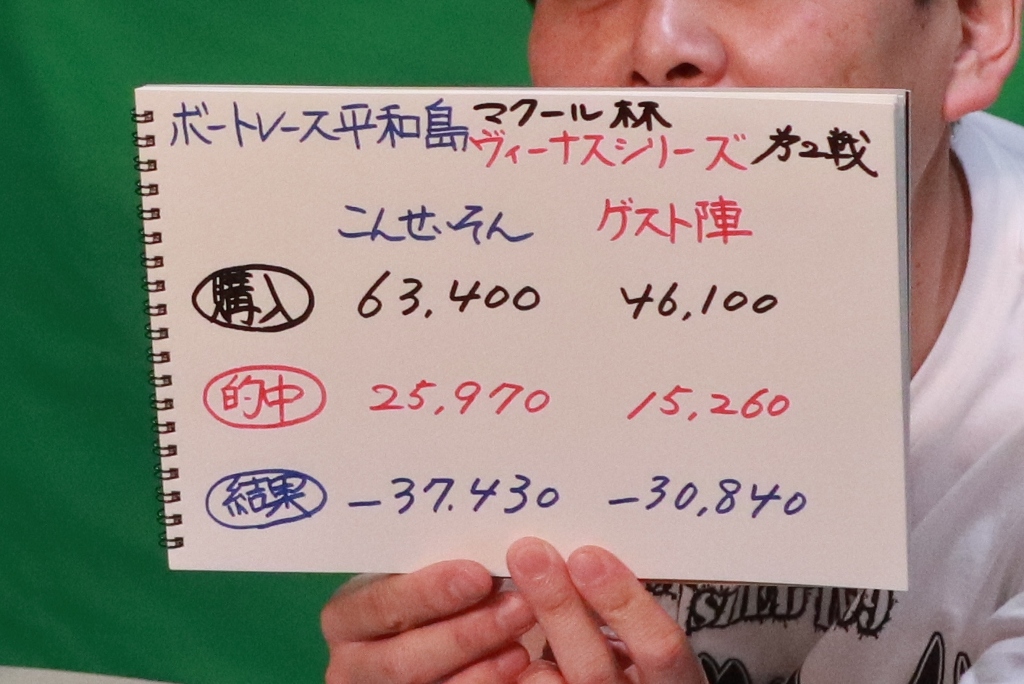 ボートレース平和島 マクール杯
ヴィーナスシリーズ 第2戦
こんせ、そん ゲスト陣
購入 63,400 46,100
的中 25,970 15,260
結果 -37.430 -30,840